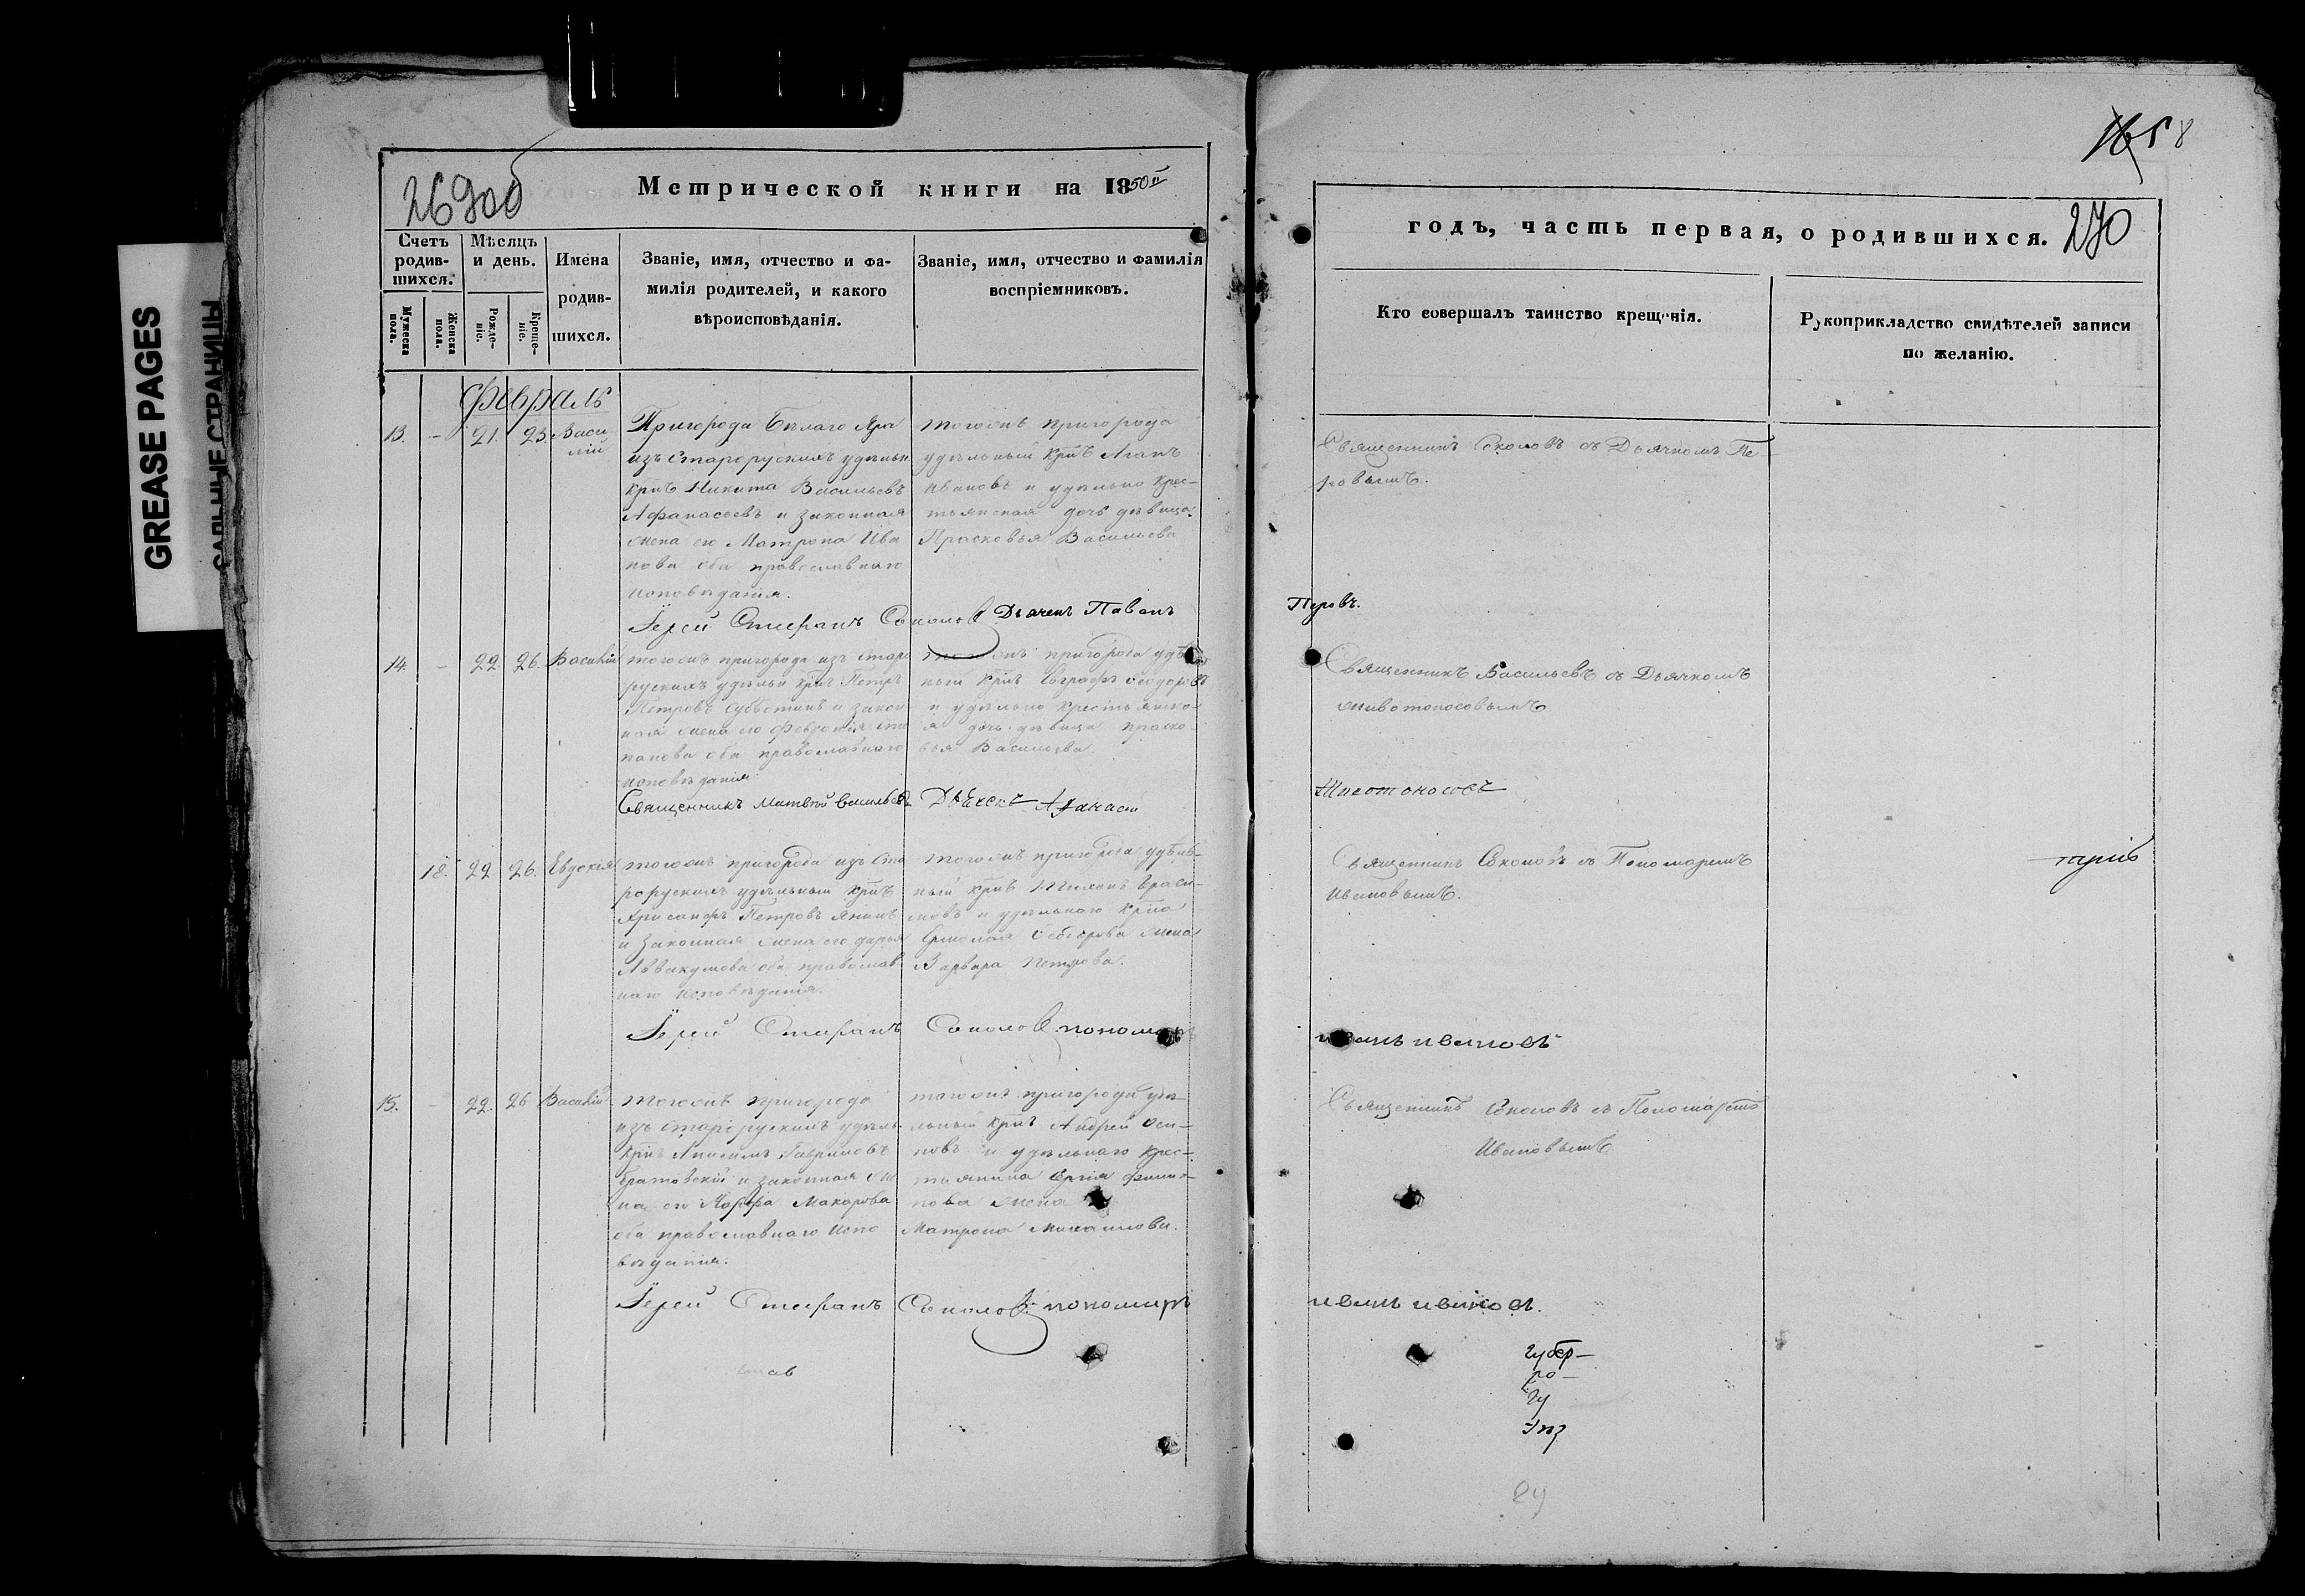 GREASE PAGES
САЛЬНЫЕ СТРАНИЦЫ
26900б
Метрической книги на 1850й
Счетъ родив-
шихся.
Мужеска пола.
Женска пола.
Мѣсяцъ и день.
Рожде-
ніе.
Креще-
ніе.
Имена
родив-
шихся.
Званіе, имя, отчество и фа-
милія родителей, и какого
вѣроисповѣданія.
Званіе, имя, отчество и фамилія
воспріемниковъ.
Февраль
13. - 21. 23. Васи
лій
Пригорода Бѣлаго Яра
изъ Старорускихъ удѣльн
крнъ Никита Васильевъ
Афанасьевъ и законная
жена его Матрона Ива
нова оба православнаго
исповѣданія.
тогожъ пригорода
удѣльный крнъ Агапъ
Ивановъ и удѣльно крес-
тьянская дочь дѣвица
Прасковья Васильева
Іерей Стефанъ Соколовъ Дьячекъ Павелъ
14. - 22 26. Василій
тогожъ пригорода изъ Старо
рускихъ удѣльн крнъ Петръ
Петровъ Субботинъ и закон
ная жена его Февронія Сте
панова оба православнаго
исповѣданія
тогожъ пригорода удѣль
ный крнъ Евграфъ Феодоровъ
и удѣльно крестьянска
я дочь дѣвица Праско
вья Васильева.
Священникъ Матвѣй Васильевъ Дьячекъ Афанасій
18. 22 26. Евдокія
тогожъ пригорода изъ Ста
рорускихъ удѣльный крнъ
Хрисанфъ Петровъ Янинъ
и законная жена его Дарья
Аввакумова оба православ
наго исповѣданія.
тогожъ пригорода удѣль-
ный крнъ Тихонъ Гераси-
мовъ и удѣльнаго крна
Ермолая Федорова жена
Варвара Петрова.
Іерей Стефанъ Соколовъ пономарь
15. - 22. 26 Василій
тогожъ пригорода
изъ Старорускихъ удѣль
крнъ Анисимъ Гавриловъ
Братовскій и законная же
на его Марфа Макарова
оба православнаго испо
вѣданія.
тогожъ пригорода удѣ-
льный крнъ Андрей Оси-
повъ и удѣльнаго крес-
тьянина Сергія Филип-
пова жена
Матрона Михаилова.
Іерей Стефанъ Соколовъ пономарь
1658
годъ, часть первая, о родившихся.
270
Кто совершалъ таинство крещенія.
Рукоприкладство свидѣтелей записи
по желанію.
Священникъ Соколовъ съ Дьячкомъ Пе-
ровымъ.
Перовъ.
Священникъ Васильевъ съ Дьячкомъ
Животоносовымъ
Животоносовъ
Священникъ Соколовъ съ Пономаремъ
Ивановымъ.
Иванъ Ивановъ
Священникъ Соколовъ съ Пономаремъ
Ивановымъ
Иванъ Ивановъ.
губер-
ро-
гу